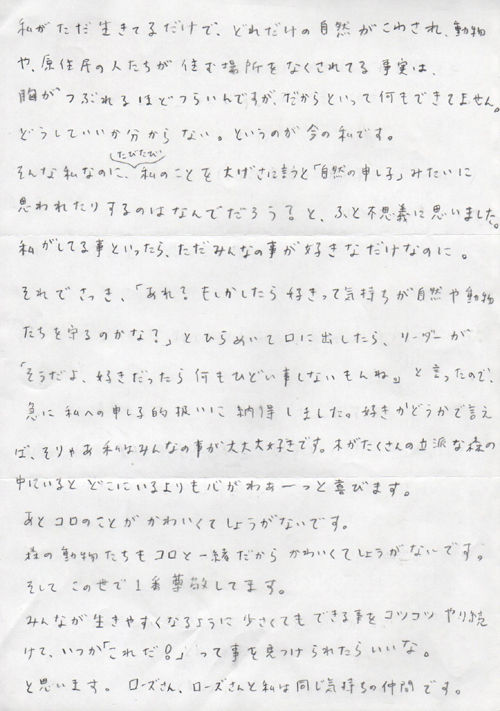 私がただ生きてるだけで、どれだけの自然がこわされ、動物
や、原住民の人たちが住む場所をなくされてる事実は、
胸がつぶれるほどつらいんですが、だからといって何もできてません。
どうしていいか分からない。というのが今の私です。
たびたび
そんな私なのに、私のことを大げさに言うと「自然の申し子」みたいに
思われたりするのはなんでだろう?と、ふと不思義に思いました。
私がしてる事といったら、ただみんなの事が好きなだけなのに。
それでさっき、「あれ?もしかしたら好きって気持ちが自然や動物
たちを守るのかな?」とひらめいて口に出したら、リーダーが
「そうだよ、好きだったら何もひどい事しないもんね。」と言ったので、
急に私への申し子的扱いに納得しました。好きかどうかで言え
ば、そりゃあ私はみんなの事が大大大好きです。木がたくさんの立派な森の
中にいるとどこにいるよりも心がわぁーっと喜びます。
あとコロのことがかわいくてしょうがないです。
森の動物たちもコロと一緒だからかわいくてしょうがないです。
そしてこの世で1番尊敬してます。
みんなが生きやすくなるように少さくてもできる事をコツコツやり続
けて、いつか「これだ!」って事を見つけられたらいいな。
と思います。ローズさん、ローズさんと私は同じ気持ちの仲間です。